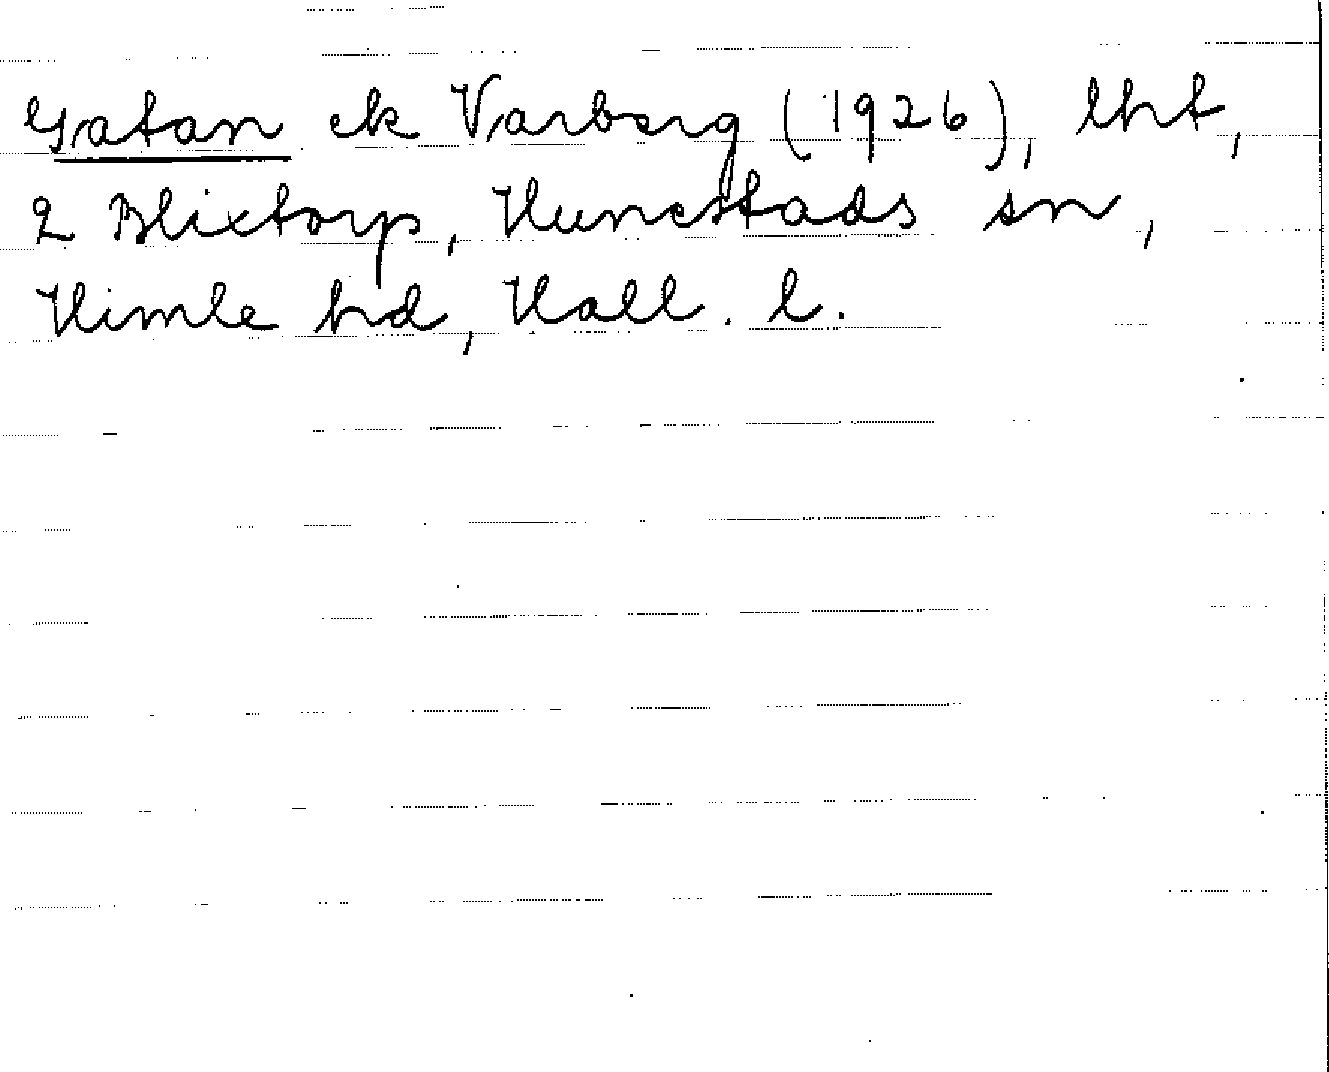 Gatan ek Varberg (1926), lht,
2 Blixtorp, Hunestads sn,
Himle hd, Hall. l.